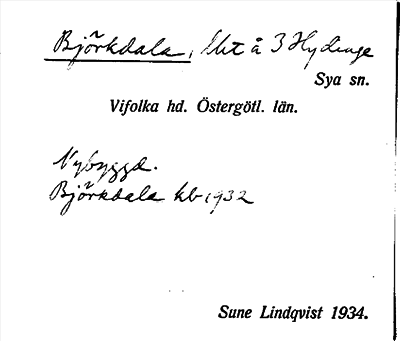 Björkdala, Utt å 3 Hydinge
Sya sn.
Vifolka hd. Östergötl. län.
Nybyggd.
Björkdala kb 1932
Sune Lindqvist 1934.